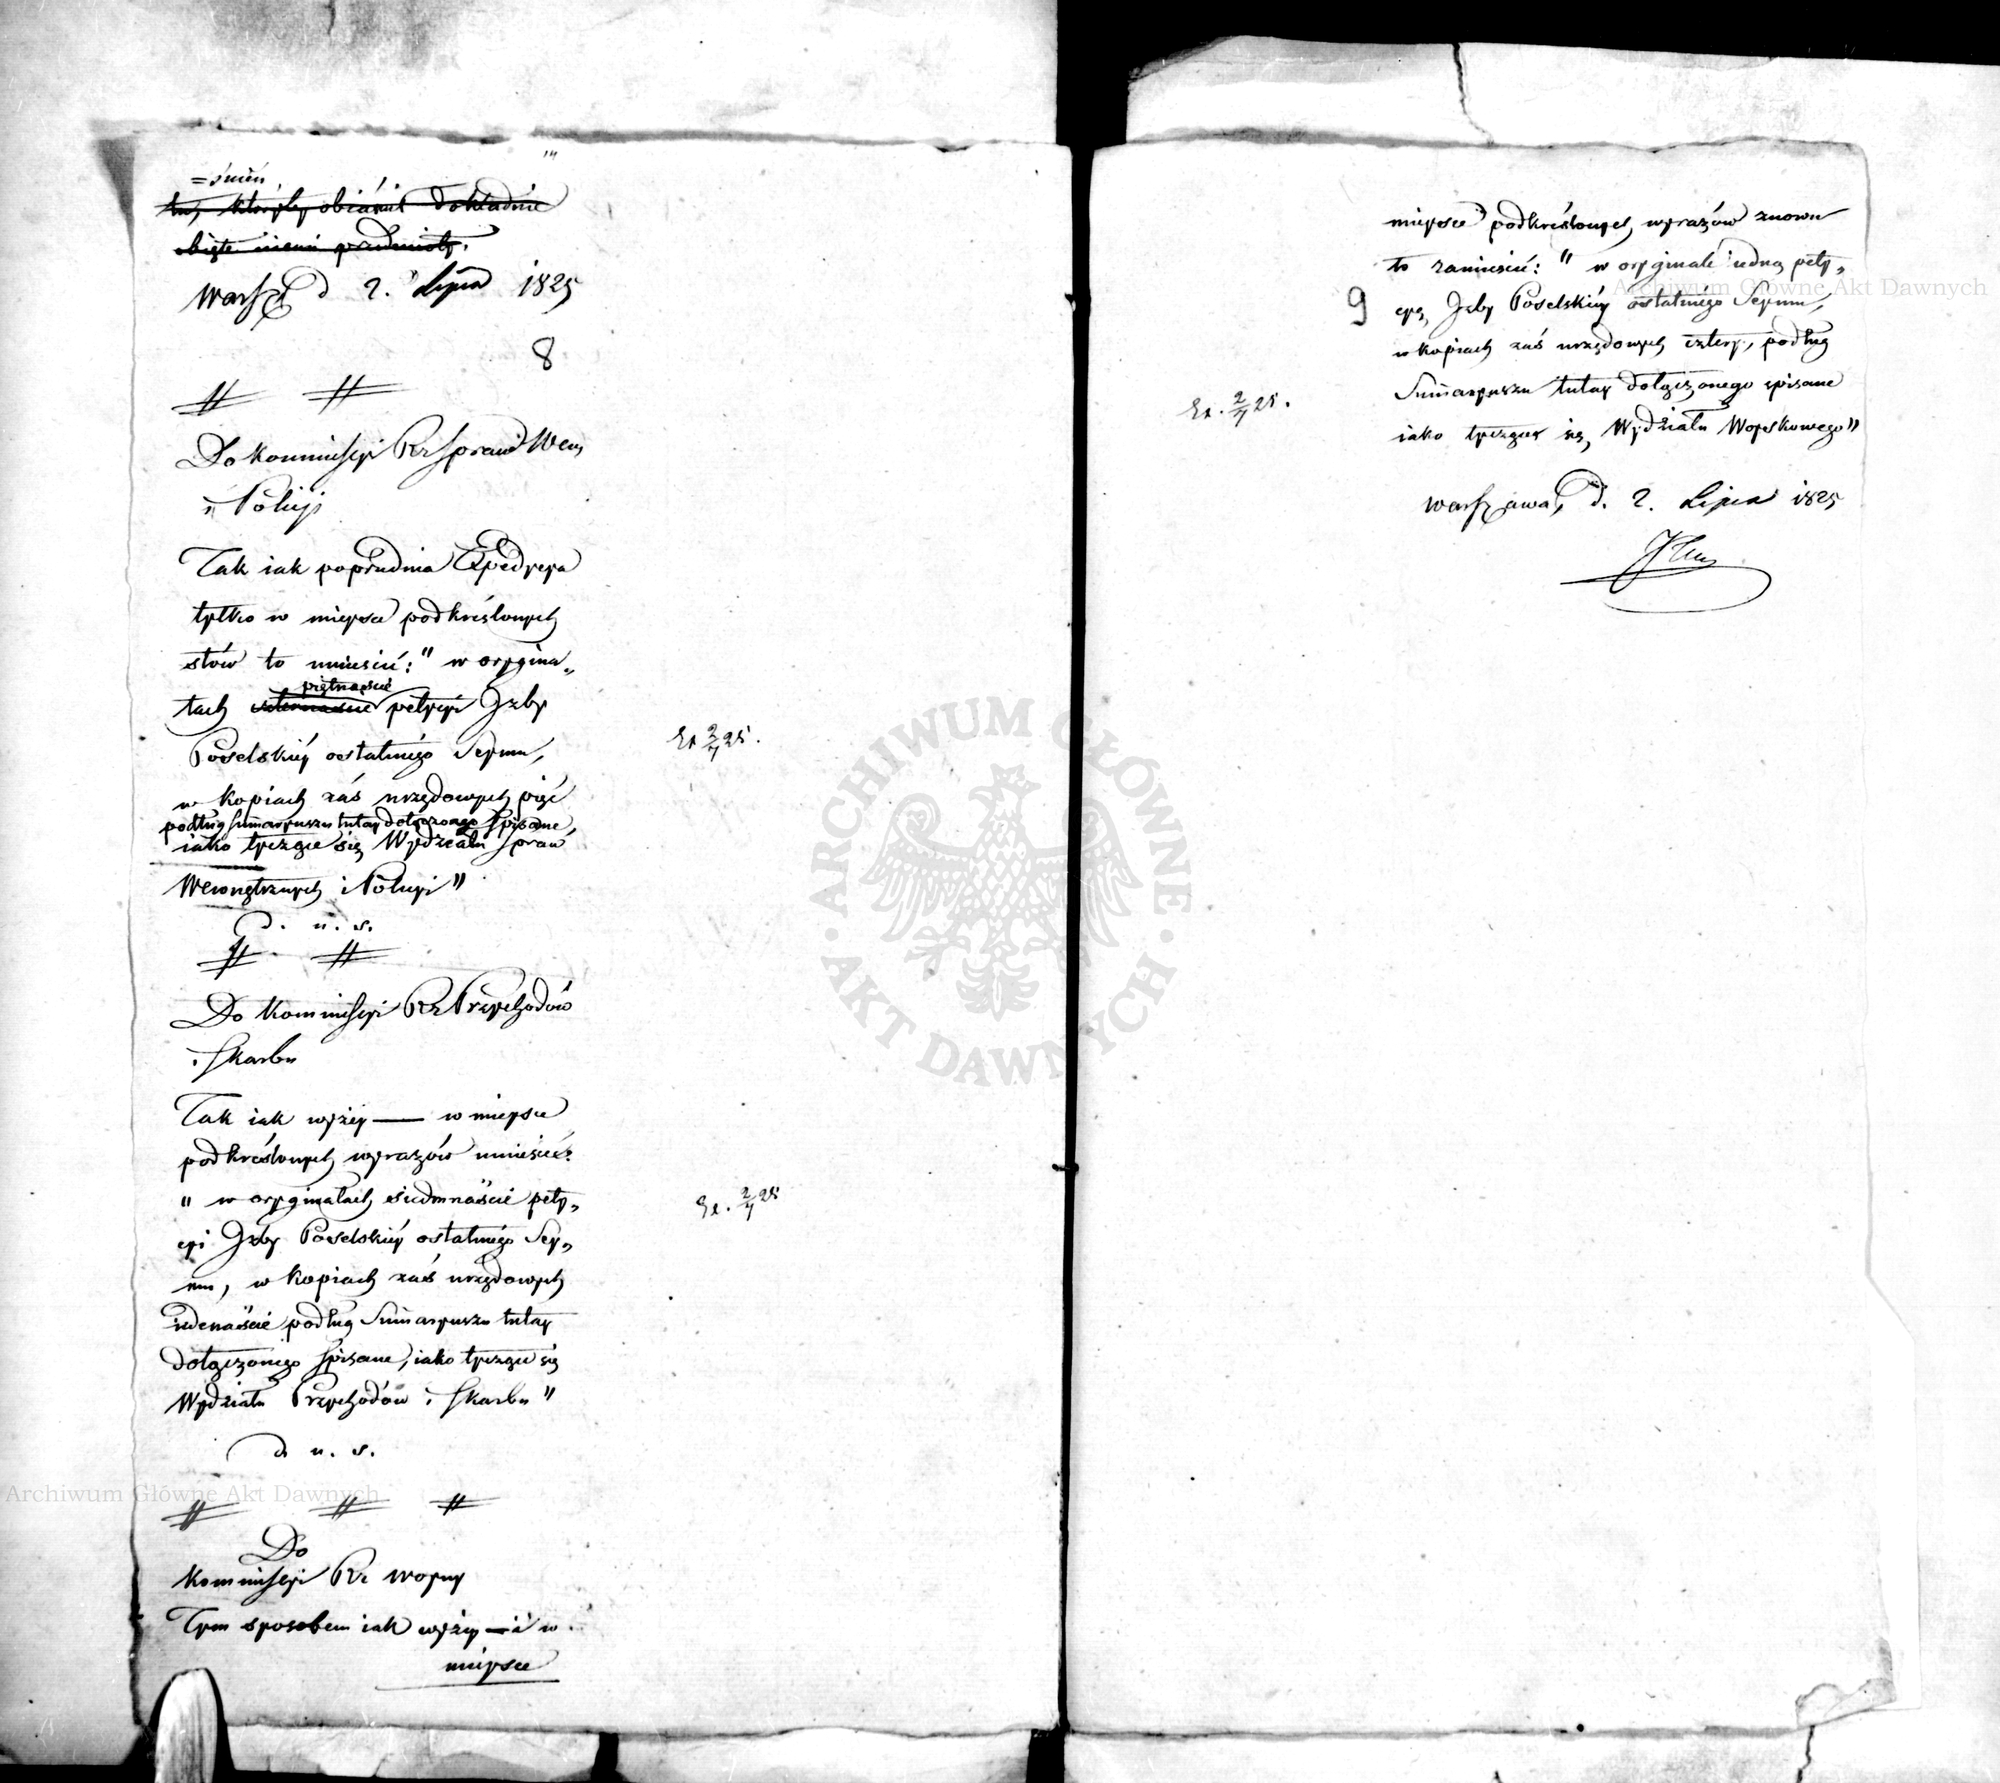 =śnień
tu, któryby obiáśnił dokładnie
obięte niemi przedmioty.
Warsz d 2. Lipca 1825
8
Do Kommissyi Rz Spraw Wew
i Policyi
Tak iak poprzednia Expedycya
tylko w mieysce podkreślonych
słów to umieścić: " w orygina„
łach czternaście piętnaście petycyi Izby
Poselskiéy ostatniégo Seymu,
w kopiach zaś urzędowych pięć
podług Summaryuszu tutay dołączonego spisane,
iako tyczące się Wydziału Spraw
Wewnętrznych i Policyi"
d. u. s.
Ex 2/7 25.
Do Kommissyi Rz Przychodów
i Skarbu
Tak iak wyżey — w mieysce
podkreślonych wyrazów umieścić:
" w oryginałach siedmnaście pety„
cyi Izby Poselskiéy ostatniégo Sey„
mu, w kopiach zaś urzędowych
iedenaście podług Summaryuszu tutay
dołączonego spisane, iako tyczące się
Wydziału Przychodów i Skarbu"
d. u. s.
Ex. 2/7 25
Do
Kommissyi Rz Woyny
Tym sposobem iak wyżey — i w
mieysce
mieysce podkreślonych wyrazów znowu
to zamieścić: " w oryginale iedną pety„
9
cyą Izby Poselskiéy ostatniégo Seymu,
w kopiach zaś urzędowych cztery, podług
Summaryuszu tutay dołączonego spisane
iako tyczące się Wydziału Woyskowego"
Ex. 2/7 25.
Warszawa, d. 2. Lipca 1825
ARCHIWUM GŁÓWNE AKT DAWNYCH
Archiwum Główne Akt Dawnych
Archiwum Główne Akt Dawnych